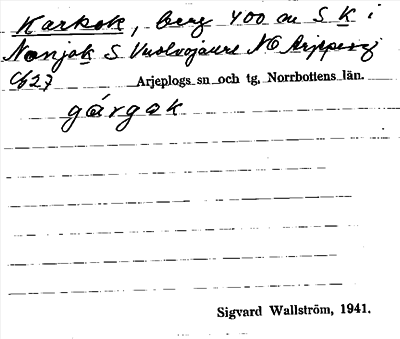 Karkok, berg 400 m S K i
Nonjok S Vuolvojaure NO Arjeplog
Cb27 Arjeplogs sn och tg. Norrbottens län.
gárgok
Sigvard Wallström, 1941.